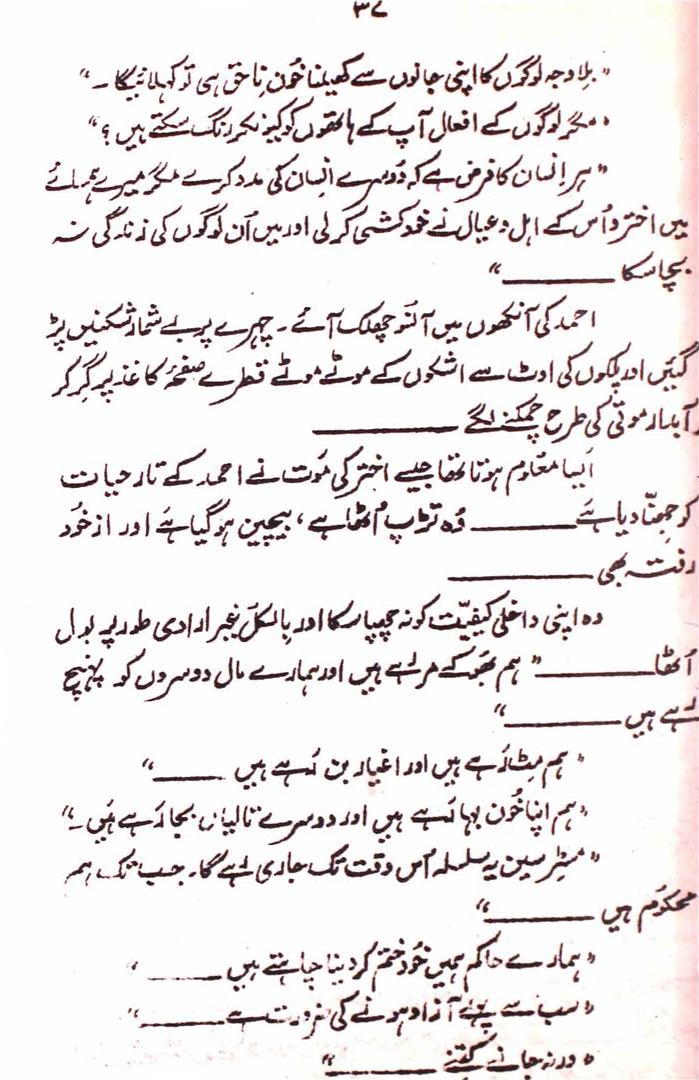 ۳۷
"بلا وجہ لوگوں کا اپنی جانوں سے کھیلنا خُونِ ناحق ہی تو کہلائیگا۔"
"مگر لوگوں کے افعال آپ کے ہاتھوں کو کیونکر رنگ سکتے ہیں؟"
"ہر اِنسان کا فرض ہے کہ دُوسرے انسان کی مدد کرے مگر میرے ہمسائے
میں اختر و اُس کے اہل و عیال نے خودکشی کر لی اور میں اُن لوگوں کی زندگی نہ
بچا سکا ـــــــــــــ"
احمد کی آنکھوں میں آنسو چھلک آئے۔ چہرے پر بے شمار شکنیں پڑ
گئیں اور پلکوں کی اوٹ سے اشکوں کے موٹے موٹے قطرے صفحۂ کاغذ پر گِر گِر کر
آبدار موتی کی طرح چمکنے لگے ـــــــــــــ
اَیسا معلُوم ہوتا تھا جیسے اختر کی مَوت نے احمد کے تارِ حیات
کو جھنّا دیا ہَے ـــــــــــــ وُہ تڑپ اُٹھا ہے، بیچین ہو گیا ہَے اور از خُود
رفتہ بھی ـــــــــــــ
وہ اپنی داخلی کیفیّت کو نہ چھپا سکا اور بِالکل غیر ارادی طور پر بول
اُٹھا ـــــــــــــ "ہم بھُوکے مر رہے ہیں اور ہمارے مال دوسروں کو پہنچ
رہے ہیں ـــــــــــــ"
"ہم مِٹ رَہے ہیں اور اغیار بن رَہے ہیں ـــــــــــــ"
"ہم اپنا خُون بہا رَہے ہیں اور دوسرے تالیاں بجا رَہے ہَیں۔"
"مسٹر سین یہ سلسلہ اُس وقت تک جاری رہے گا۔ جب تک ہم
محکوم ہیں ـــــــــــــ"
"ہمارے حاکم ہمیں خُود ختم کر دینا چاہتے ہیں ـــــــــــــ"
"سب سے پہلے آزاد ہونے کی ضرورت ہے ـــــــــــــ"
"ورنہ جانے کتنے ـــــــــــــ"